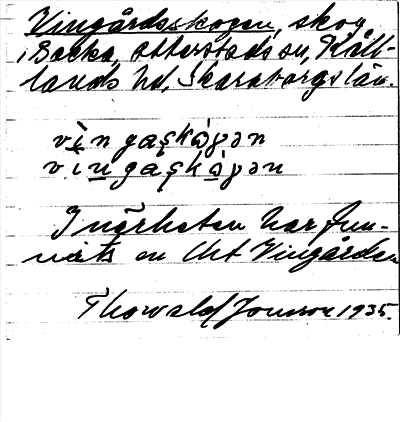 Vingårdsskogen, skog
i Backa, Otterstads sn, Kåll-
lands hd, Skaraborgs län.
vìn gaʂkògən
vìn gaʂkògən
I närheten har fun-
nits en lht Vingården
Thorvald Jonsson 1935.